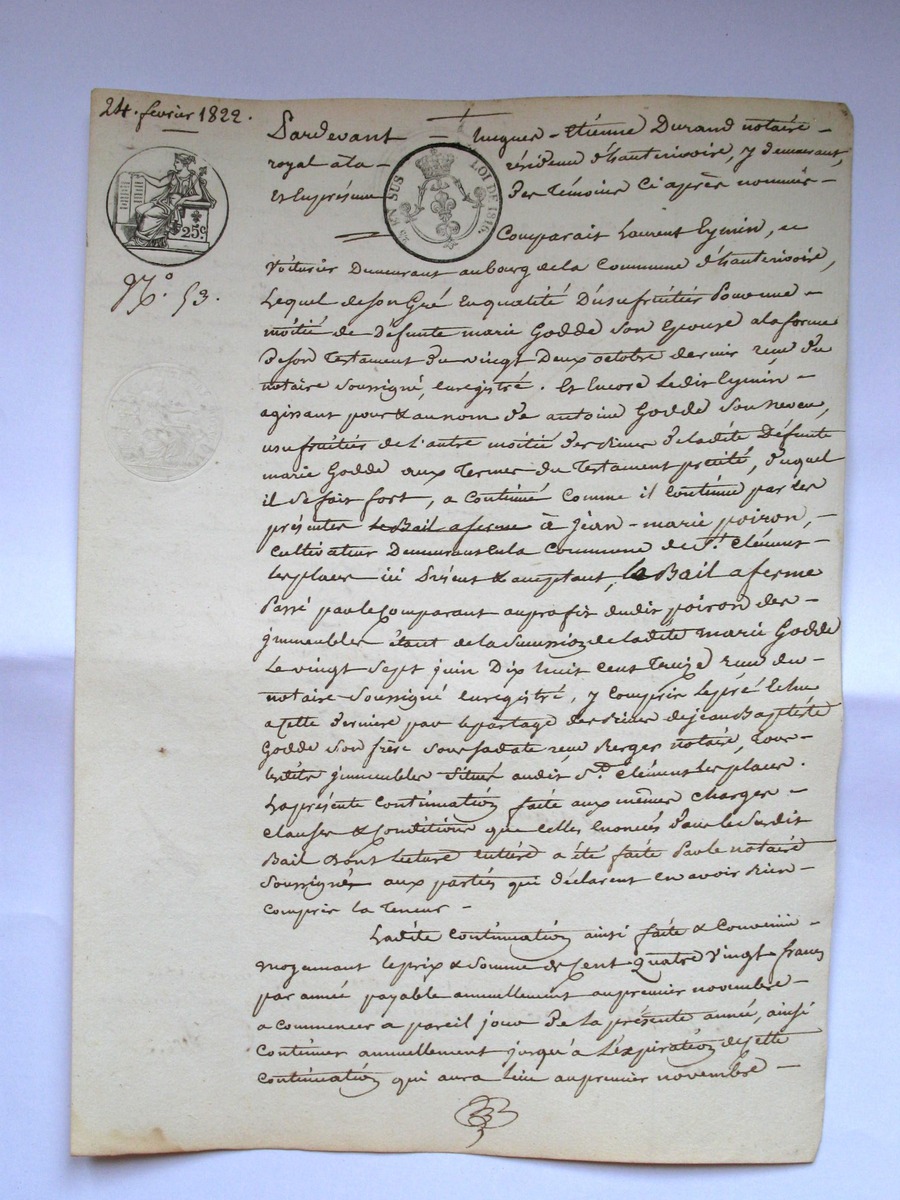 24. fevrier 1822.
Pardevant = hugues-etienne Durand notaire -
royal à la - résidence d'hauterivoire, y demeurant,
et en présence des témoins ci après nommés -
25c.
EN SUS
LOI DE 1816.
Comparait Laurent Eymin,
N.o 53.
voiturier demeurant au bourg de la commune d'hauterivoire,
Lequel de son gré en qualité d'usufruitier pour une -
moitié de défunte marie Godde son épouse a la forme
de son testament du vingt deux octobre dernier reçu du
notaire soussigné, enregistré. Et encore ledit Eymin -
agissant pour & au nom de antoine Godde son neveu,
usufruitier de l'autre moitié des biens de ladite défunte
marie Godde aux termes du testament précité, duquel
il se fait fort, a continué comme il continue par les
présentes le Bail a ferme à jean-marie poiron, -
cultivateur demeurant en la commune de St. Clément-
les places ici présent & acceptant, le Bail a ferme
passé par le comparant au profit dudit poiron des -
immeubles étant de la succession de ladite marie Godde
le vingt sept juin dix huit cent treize reçu du -
notaire soussigné enregistré, y compris le pré échu
a cette derniere par le partage des biens de jean Baptiste
Godde son frère sous sa date reçu Berger notaire, tous -
lesdits immeubles situés audit St. Clément les places.
La présente continuation faite aux mêmes charges -
clauses & conditions que celles énoncées dans le susdit
Bail dont lecture entière a été faite par le notaire
soussigné aux parties qui déclarent en avoir bien -
compris la teneur -
Ladite continuation ainsi faite & convenue -
moyennant le prix & somme de cent quatre vingt francs
par année payable annuellement au premier novembre -
a commencer a pareil jour de la présente année, ainsi
continuer annuellement jusqu'à l'expiration de cette
continuation qui aura lieu au premier novembre -